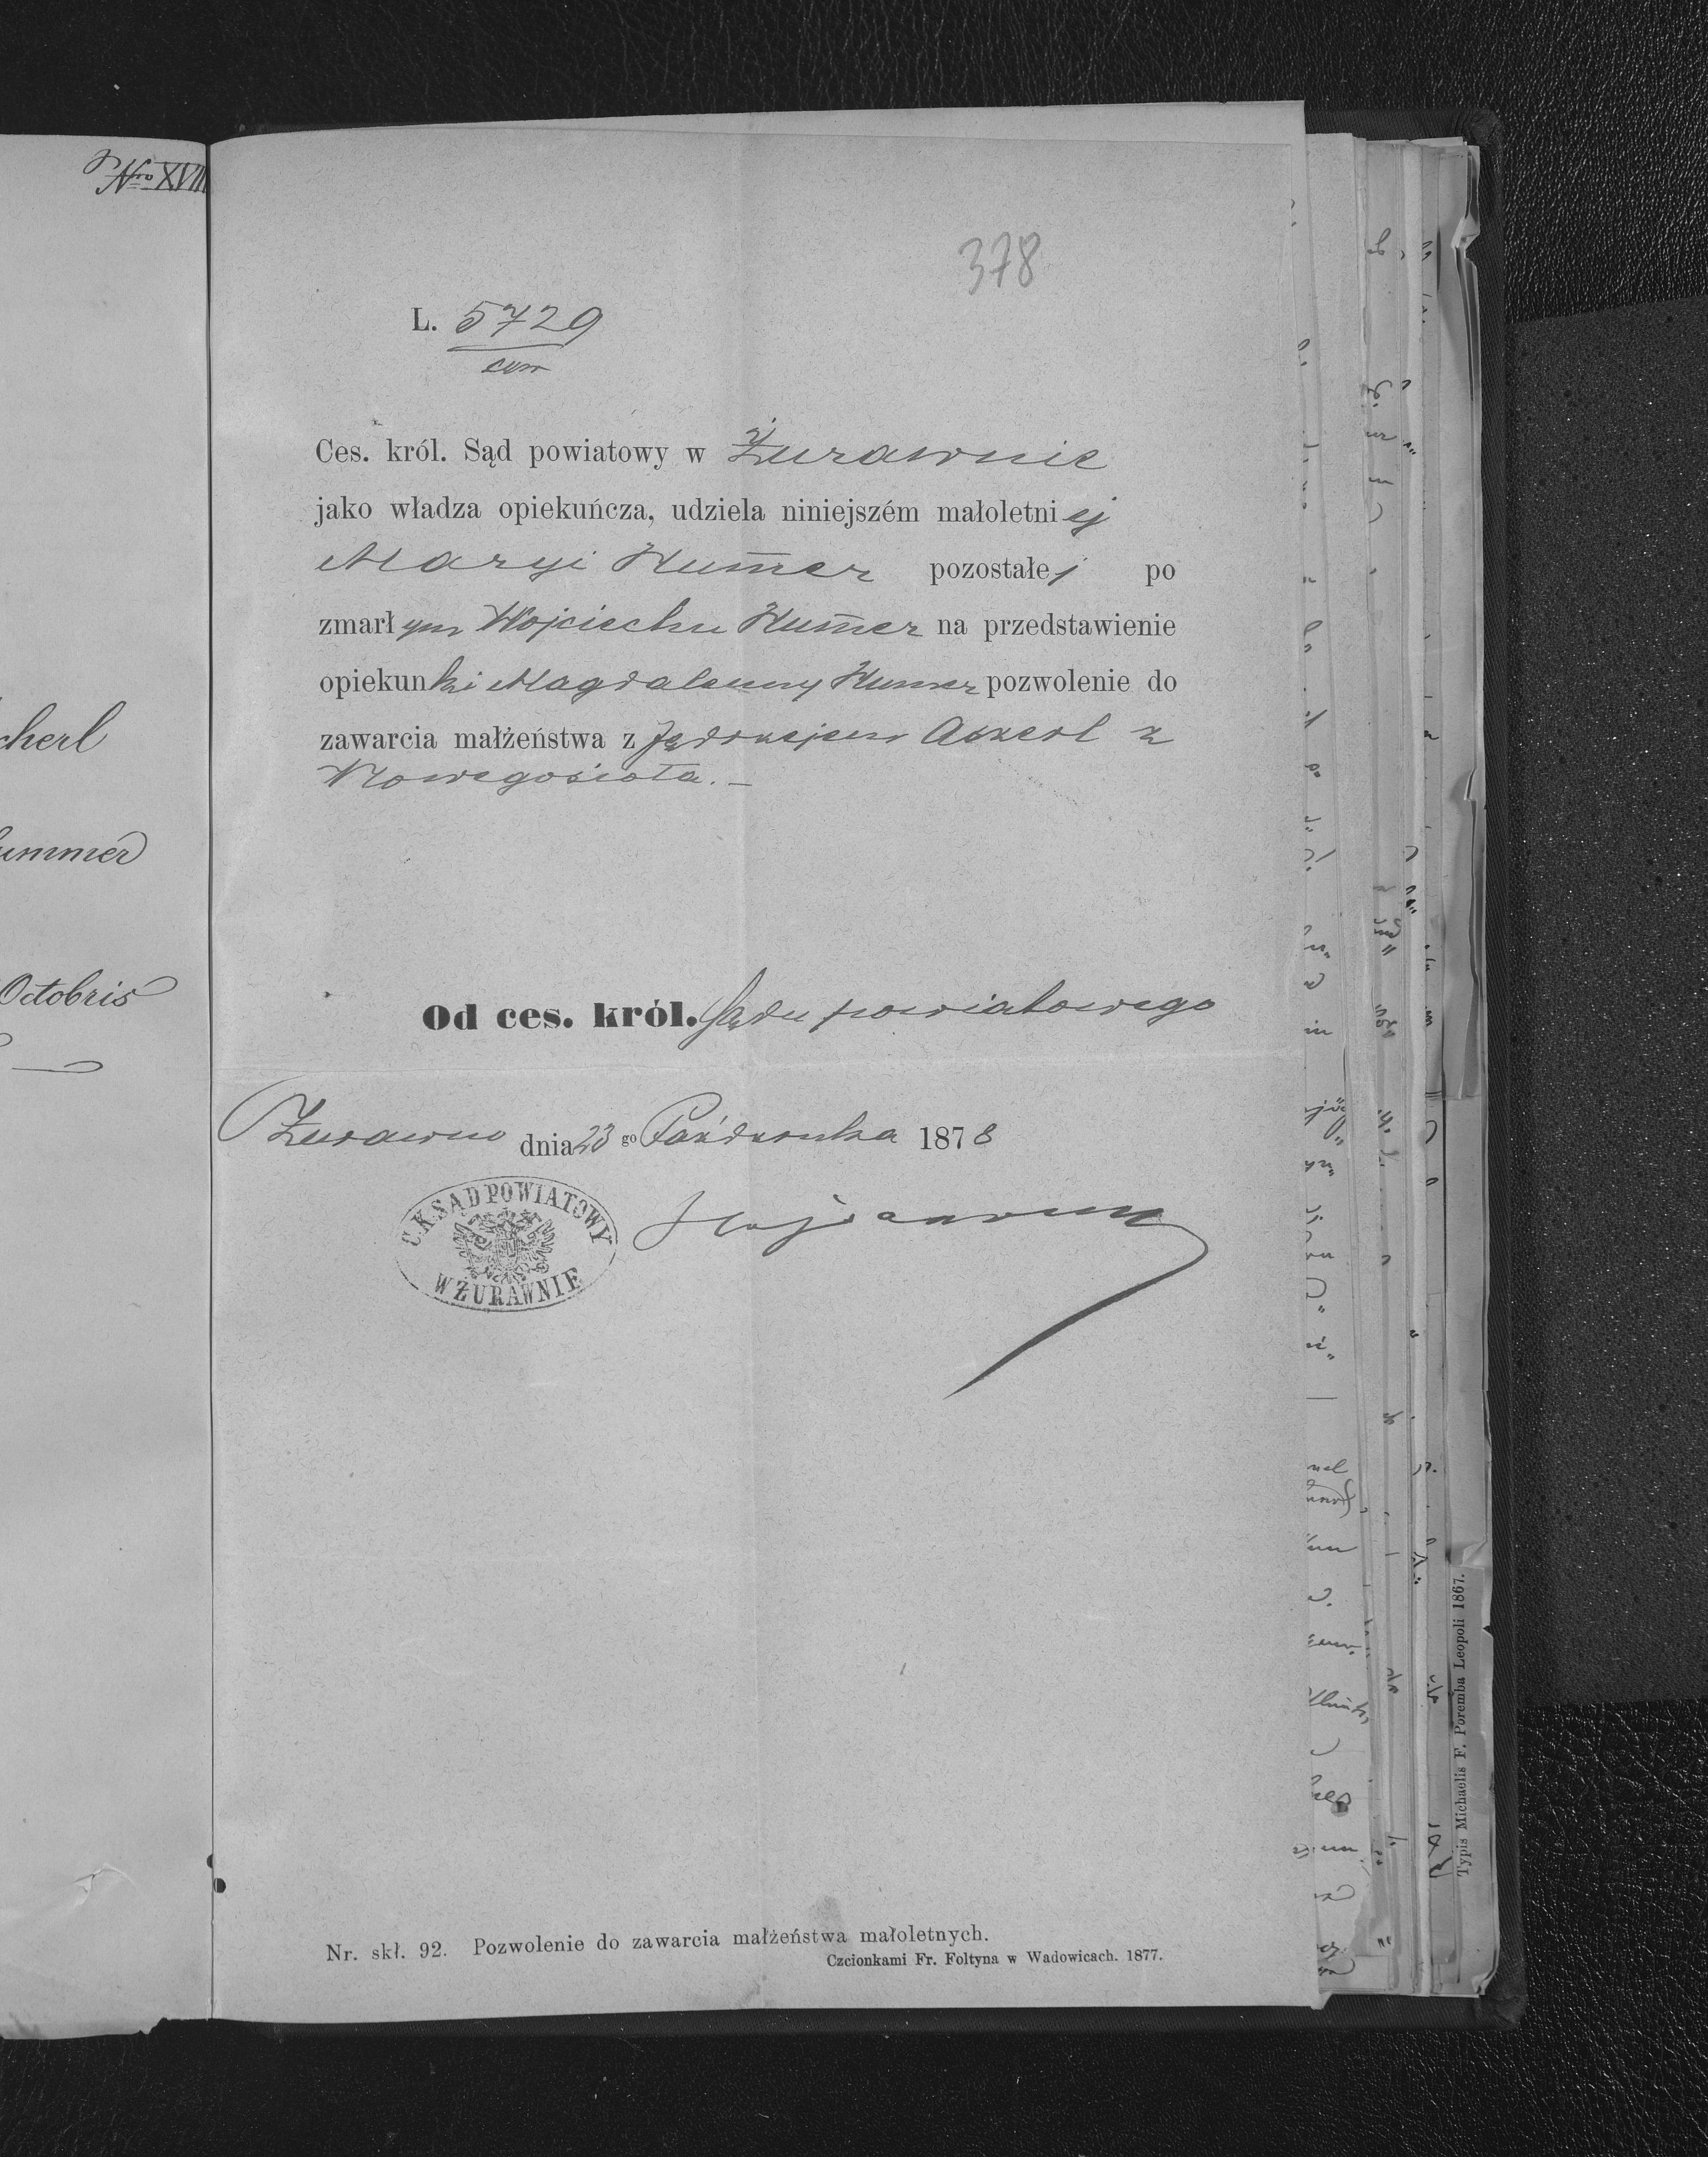 Nro XVIII
378
L. 5729
Ces. król. Sąd powiatowy w Żurawnie
jako władza opiekuńcza, udziela niniejszém małoletniej
Maryi Hum̄er pozostałej po
zmarłym Wojciechu Hum̄er na przedstawienie
opiekunki Magdaleny Humer pozwolenie do
zawarcia małżeństwa z Jędrzejem Axerl z
Nowegosioła.–
cherl
ummer
Octobris
Od ces. król. Sądu powiatowego
Żurawno dnia 23 go Października 1878
C.K. SĄD POWIATOWY
W ŻURAWNIE
Nr. skł. 92. Pozwolenie do zawarcia małżeństwa małoletnych.
Czcionkami Fr. Foltyna w Wadowicach. 1877.
Typis Michaelis F. Poremba Leopoli 1867.